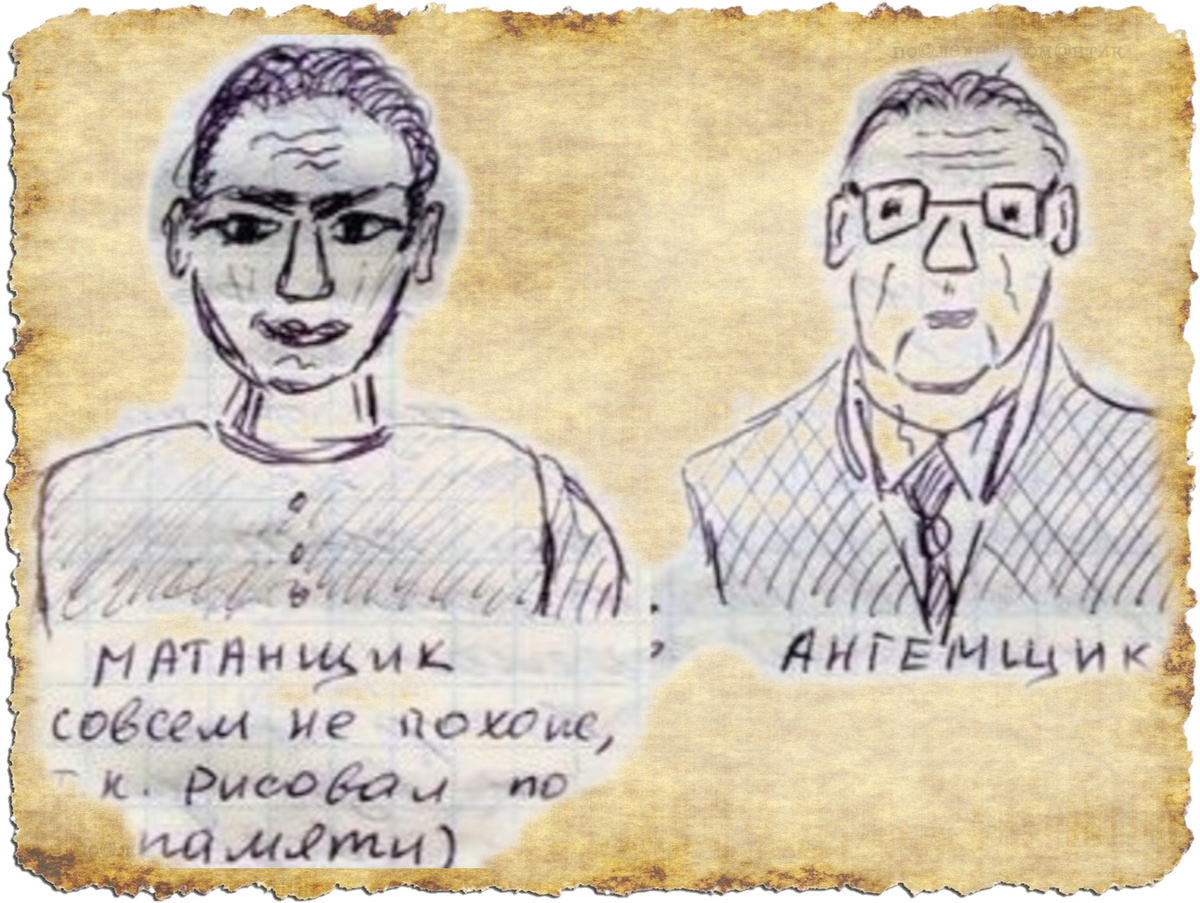 МАТАНЩИК
совсем не похоже,
т.к. рисовал по
памяти)
АНГЕМЩИК